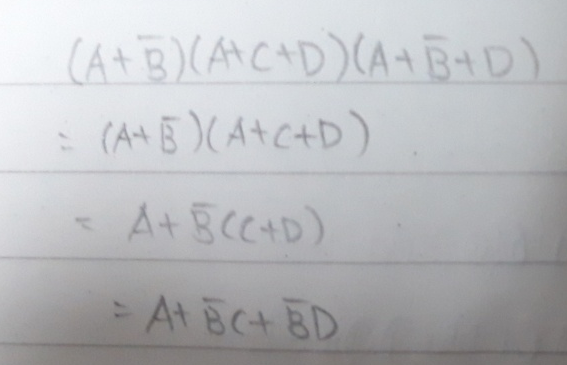 (A+B̅)(A+C+D)(A+B̅+D)
= (A+B̅)(A+C+D)
= A+B̅(C+D)
= A+B̅C+B̅D